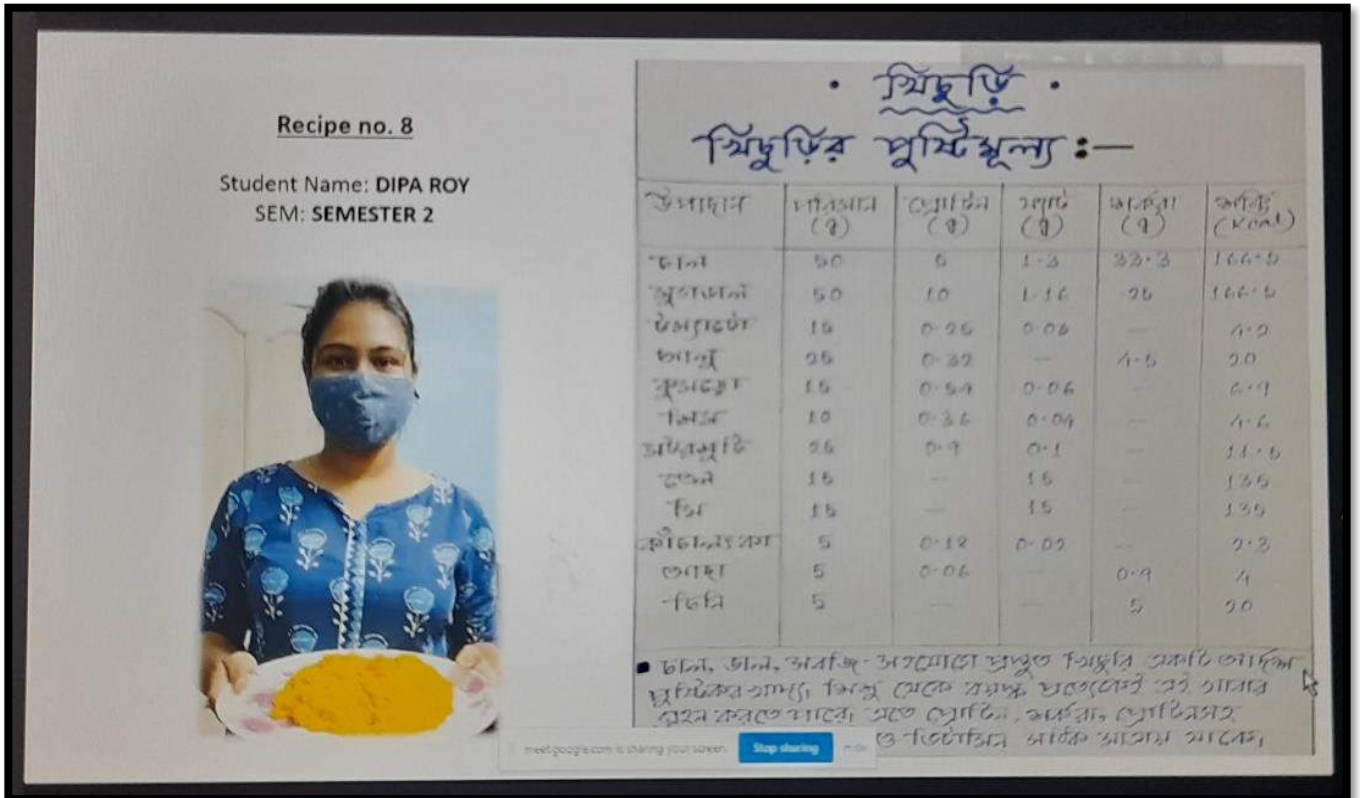 Recipe no. 8
Student Name: DIPA ROY
SEM: SEMESTER 2
• খিচুড়ি •
খিচুড়ির পুষ্টিমূল্য :—
উপাদান পরিমান (g) প্রোটিন (g) ফ্যাট (g) শর্করা (g) শক্তি (Kcal)
চাল 50 5 1.3 33.3 166.5
মুগডাল 50 10 1.16 25 166.5
টম্যাটো 15 0.25 0.05 — 4.2
আলু 25 0.32 — 4.5 20
কুমড়ো 15 0.54 0.06 — 6.9
10 0.36 0.04 — 4.6
মটরশুটি 25 0.9 0.1 — 11.5
তেল 15 — 15 — 135
ঘি 15 — 15 — 135
কাঁচালংকা 5 0.18 0.02 — 2.3
আদা 5 0.06 — 0.9 4
চিনি 5 — — 5 20
▪ চাল, ডাল, সবজি সহযোগে প্রস্তুত খিচুরি একটি আর্দশ
পুষ্টিকর খাদ্য। শিশু থেকে বয়স্ক প্রত্যেকেই এই খাবার
গ্রহন করতে পারে। এতে প্রোটিন, শর্করা, প্রোটিনসহ
ও ভিটামিন সঠিক মাত্রায় থাকে।
meet.google.com is sharing your screen. Stop sharing Hide